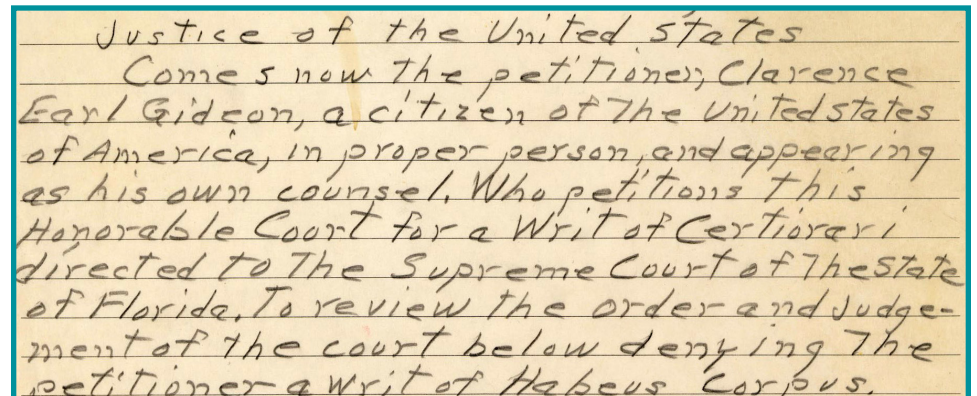 Justice of the United States
Comes now the petitioner, Clarence
Earl Gideon, a citizen of The United states
of America, in proper person, and appearing
as his own counsel. Who petitions this
Honorable Court for a Writ of Certiorari
directed to The Supreme Court of The State
of Florida. To review the order and Judge-
ment of the court below denying The
petitioner a writ of Habeus Corpus.